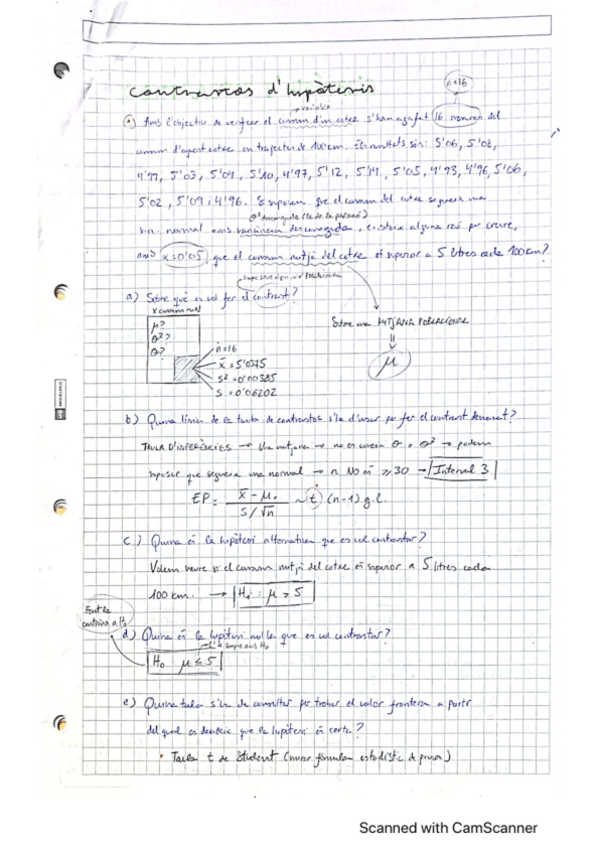 Contrastos d'hipòtesis
n=16
variable
Amb l'objectiu de verificar el consum d'un cotxe s'han agafat 16 mesures del
consum d'aquest cotxe en trajectes de 100 km. Els resultats són: 5'06, 5'02,
4'99, 5'03, 5'09, 5'10, 4'97, 5'12, 5'05, 4'93, 4'96, 5'06,
5'02, 5'09 i 4'96. Si suposem que el consum del cotxe segueix una
llei normal amb variància desconeguda, existeix alguna raó per creure,
amb α=0'05, que el consum mitjà del cotxe és superior a 5 litres cada 100 km?
a) Sobre què es vol fer el contrast?
X consum ~ N
μ?
σ²?
σ?
n=16
x̄ = 5'0275
s² = 0'00385
s = 0'06202
Sobre una MITJANA POBLACIONAL
μ
b) Quina línia de la taula de contrastos s'ha d'usar per fer el contrast demanat?
TAULA D'INFERÈNCIES → Una mitjana → no es coneix σ o σ² → podem
suposar que segueix una normal → n NO és ≥ 30 → Interval 3
EP = x̄ - μ₀ / s/√n ~ t (n-1) g.l.
c.) Quina és la hipòtesi alternativa que es vol contrastar?
Volem veure si el consum mitjà del cotxe és superior a 5 litres cada
100 km. → H₁ : μ > 5
d) Quina és la hipòtesi nul·la que es vol contrastar?
H₀ : μ ≤ 5
e) Quina taula s'ha de consultar per trobar el valor frontera a partir
del qual es decideix que la hipòtesi és certa?
• Taula t de Student (mirar fórmula estadístic de prova)
Scanned with CamScanner